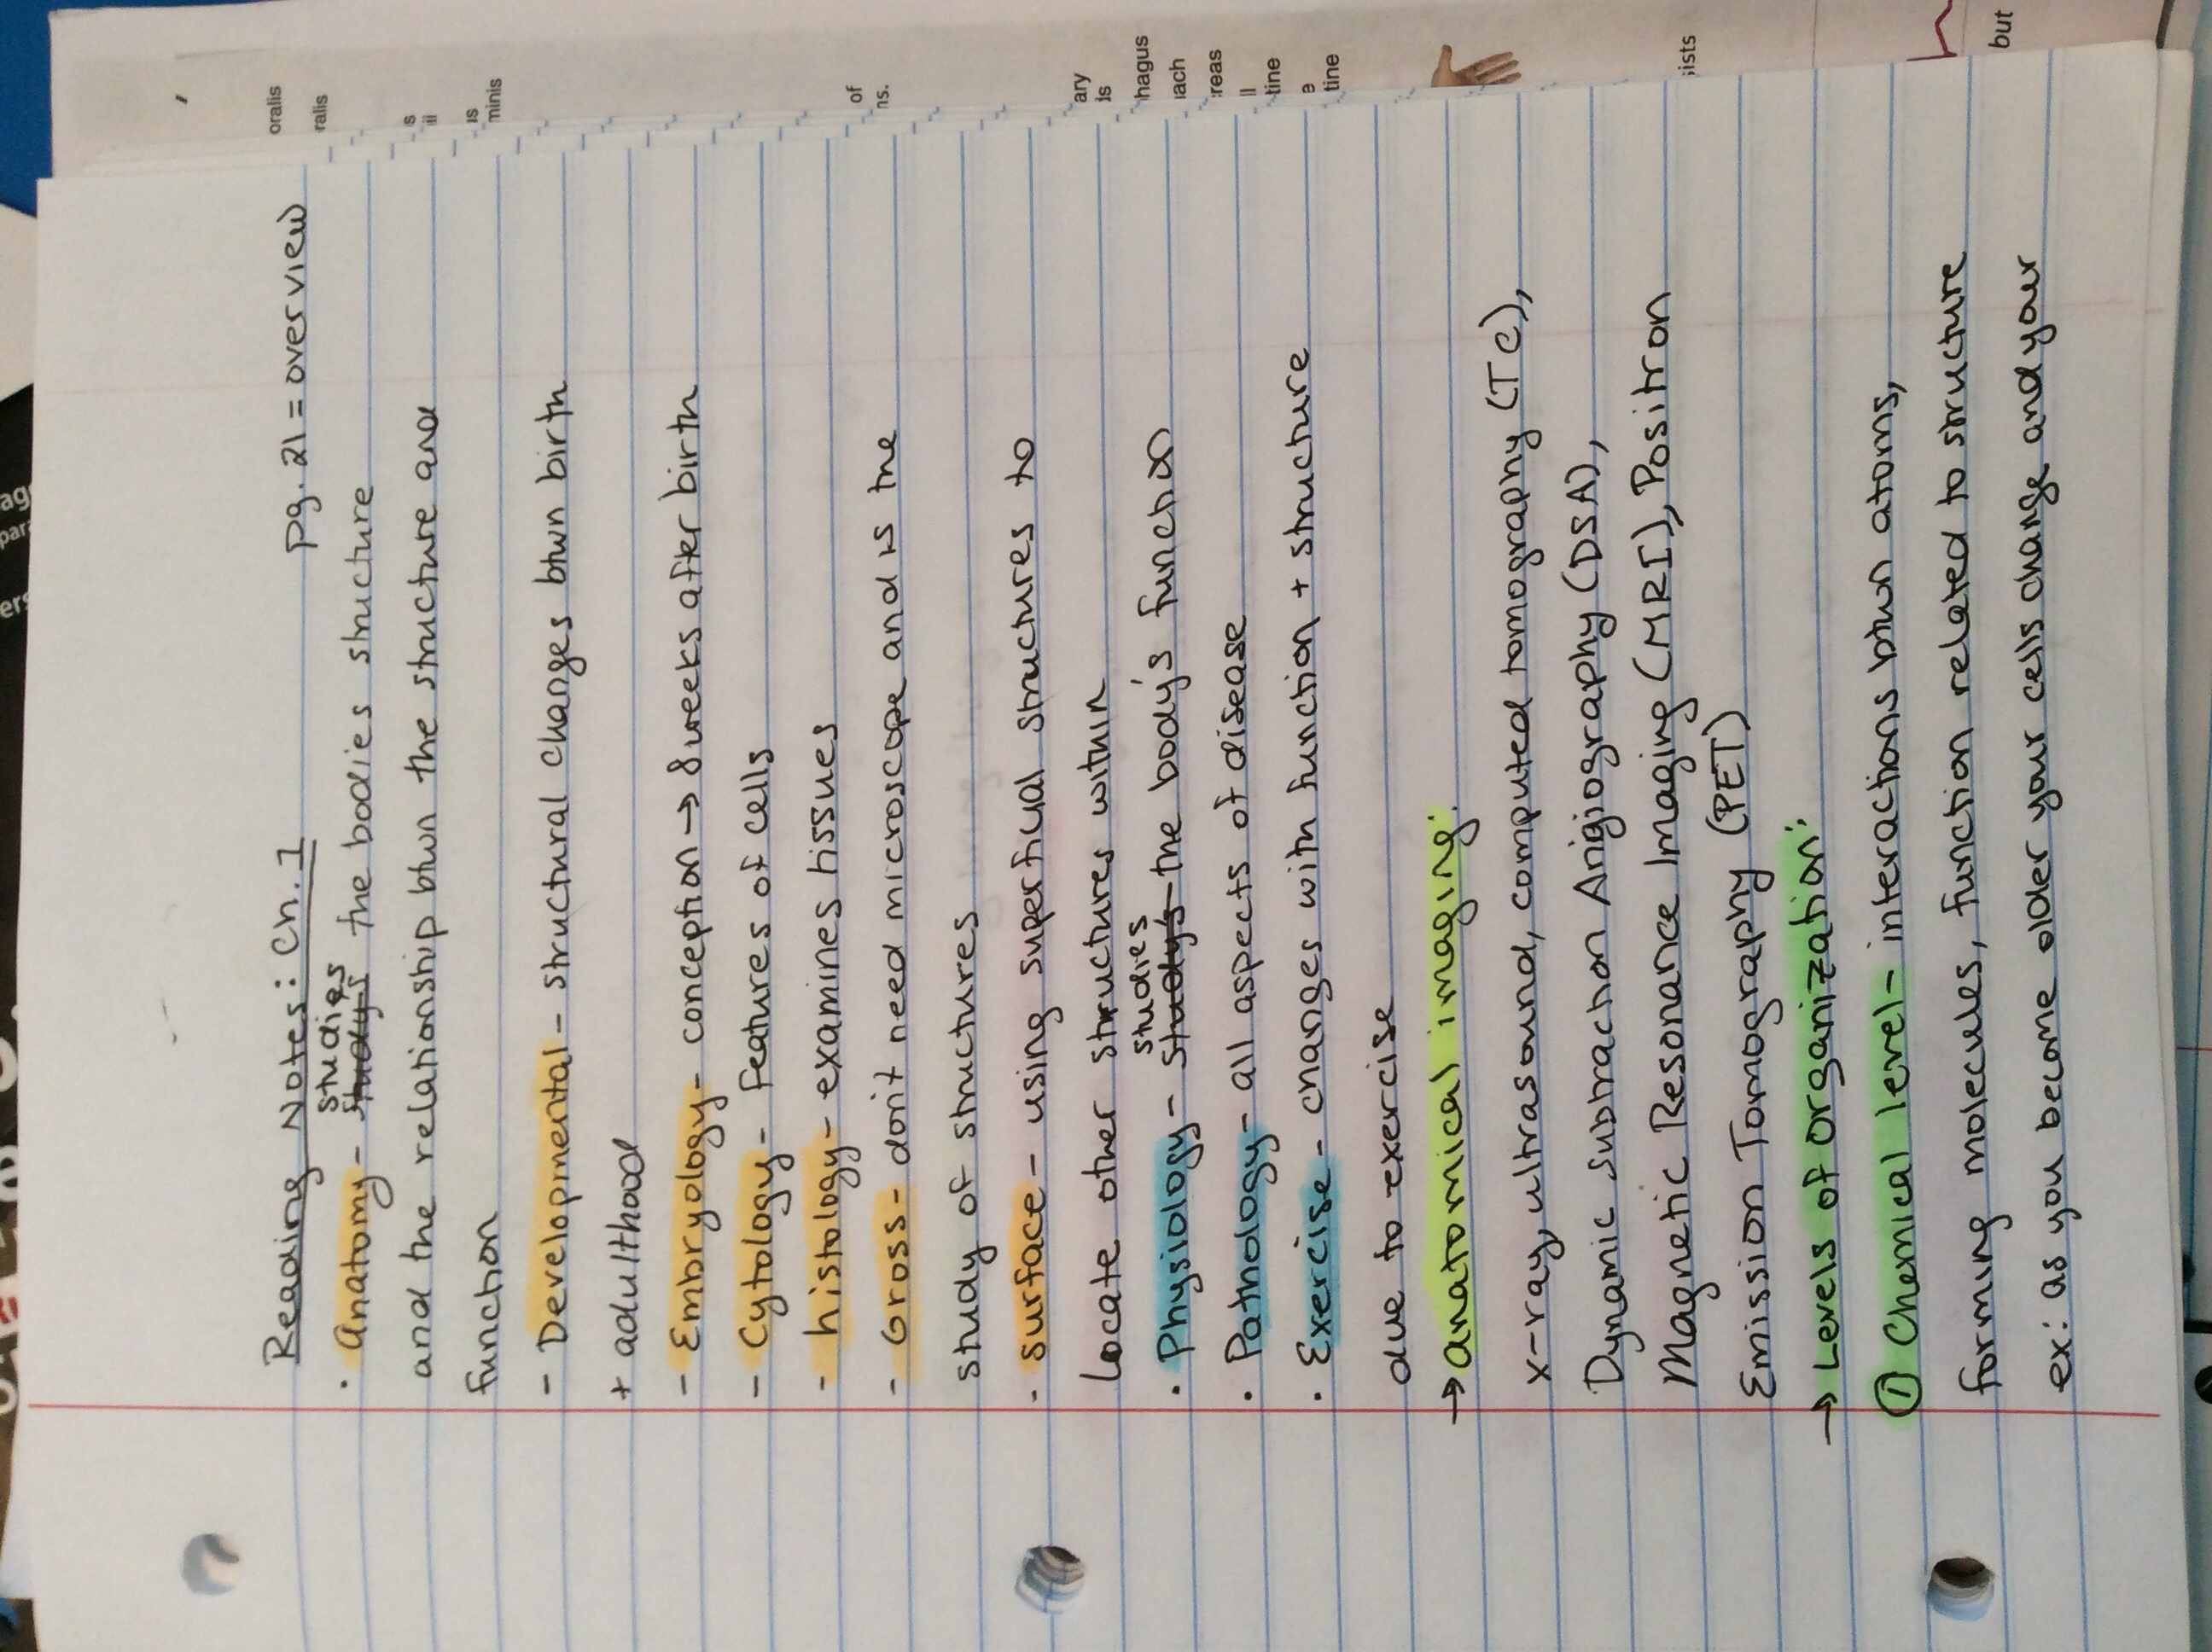 Reading Notes: Ch. 1 pg. 21 = overview
studies
· Anatomy - studys the bodies structure
and the relationship btwn the structure and
function
- Developmental - structural changes btwn birth
+ adulthood
- Embryology - conception → 8 weeks after birth
- Cytology - features of cells
- histology - examines tissues
- Gross - don't need microscope and is the
study of structures
- surface - using superficial structures to
Locate other structures within
studies
· Physiology - studys the body's function
· Pathology - all aspects of disease
· Exercise - changes with function + structure
due to exercise
→ anatomical imaging:
x-ray, ultrasound, computed tomography (TC),
Dynamic subtraction Angiography (DSA),
Magnetic Resonance Imaging (MRI), Positron
Emission Tomography (PET)
→ Levels of organization:
① Chemical level - interactions btwn atoms,
forming molecules, function related to structure
ex: as you become older your cells change and your
oralis
ralis
s
ii
is
minis
of
ns.
ary
is
hagus
ach
reas
ll
tine
e
tine
sists
but